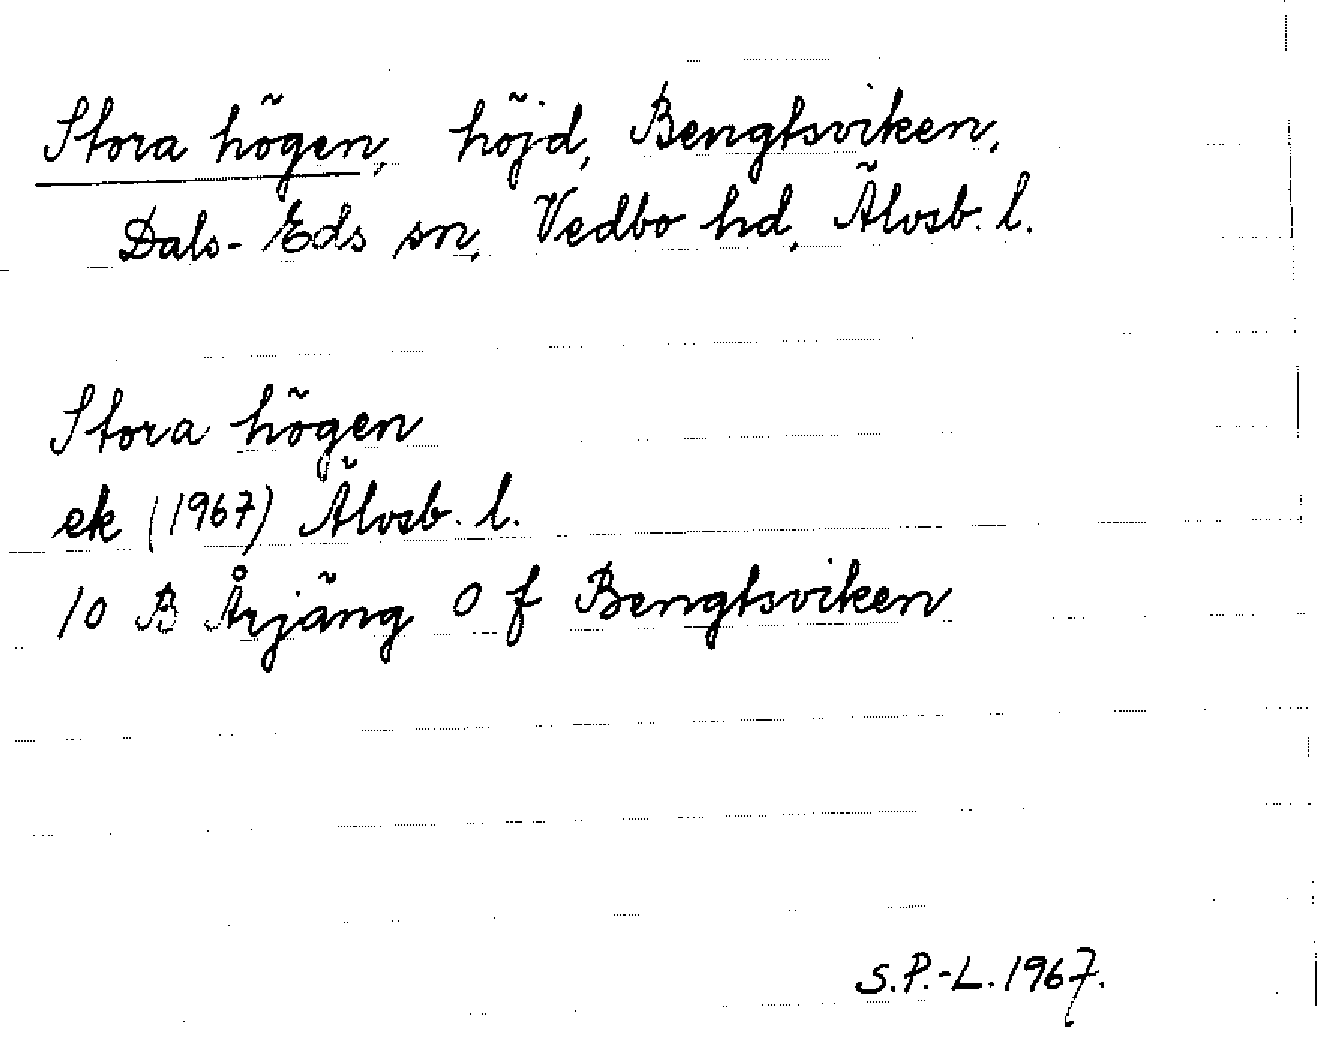 Stora högen, höjd, Bengtsviken,
Dals-Eds sn, Vedbo hd, Älvsb. l.
Stora högen
ek (1967) Älvsb. l.
10 B Årjäng 0 f Bengtsviken
S.P.-L. 1967.